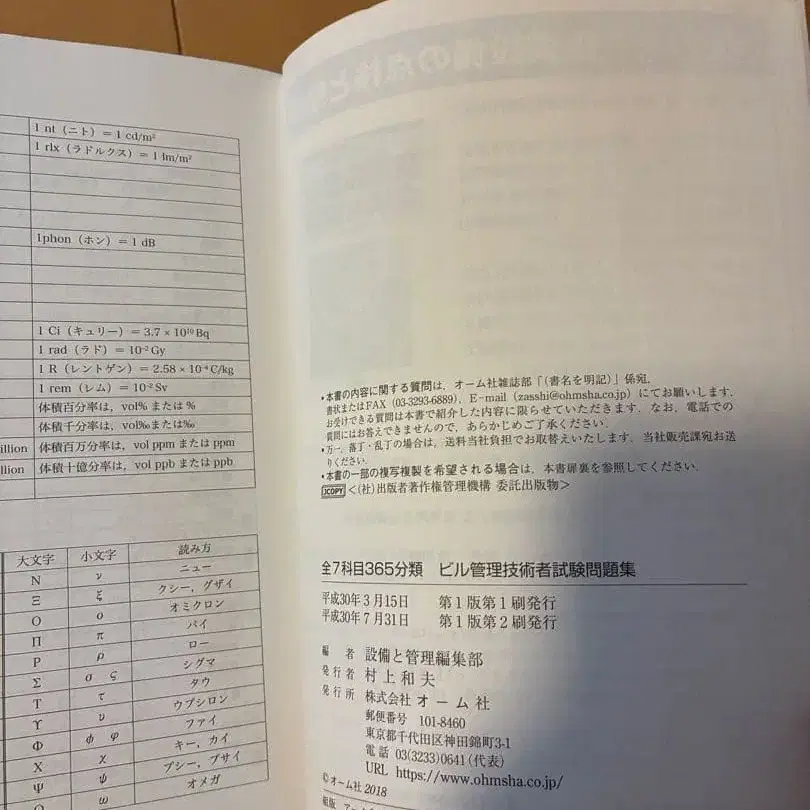 1 nt（ニト）= 1 cd/m²
1 rlx（ラドルクス）= 1 lm/m²
1phon（ホン）= 1 dB
1 Ci（キュリー）= 3.7 × 10¹⁰ Bq
1 rad（ラド）= 10⁻² Gy
1 R（レントゲン）= 2.58 × 10⁻⁴ C/kg
1 rem（レム）= 10⁻² Sv
体積百分率は，vol% または %
体積千分率は，vol‰または‰
illion 体積百万分率は，vol ppm または ppm
llion 体積十億分率は，vol ppb または ppb
大文字 小文字 読み方
Ν ν ニュー
Ξ ξ クシー，グザイ
Ο ο オミクロン
Π π パイ
Ρ ρ ロー
Σ σ ς シグマ
Τ τ タウ
Υ υ ウプシロン
Φ φ φ ファイ
Χ χ キー，カイ
Ψ ψ プシー，プサイ
Ω ω オメガ
•本書の内容に関する質問は，オーム社雑誌部「（書名を明記）」係宛，
書状またはFAX（03-3293-6889），E-mail（zasshi@ohmsha.co.jp）にてお願いします．
お受けできる質問は本書で紹介した内容に限らせていただきます．なお，電話での
質問にはお答えできませんので，あらかじめご了承ください．
•万一，落丁・乱丁の場合は，送料当社負担でお取替えいたします．当社販売課宛お送
りください．
•本書の一部の複写複製を希望される場合は，本書扉裏を参照してください．
JCOPY ＜（社）出版者著作権管理機構 委託出版物＞
全7科目365分類 ビル管理技術者試験問題集
平成30年3月15日 第1版第1刷発行
平成30年7月31日 第1版第2刷発行
編者 設備と管理編集部
発行者 村上和夫
発行所 株式会社 オーム社
郵便番号 101-8460
東京都千代田区神田錦町3-1
電話 03(3233)0641（代表）
URL https://www.ohmsha.co.jp/
© オーム社 2018